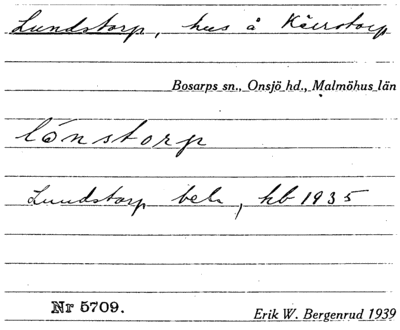 Lundstorp, hus å Kärrstorp
Bosarps sn., Onsjö hd., Malmöhus län
lónstorp
Lundstorp beb., kb 1935
Nr 5709.
Erik W. Bergenrud 1939